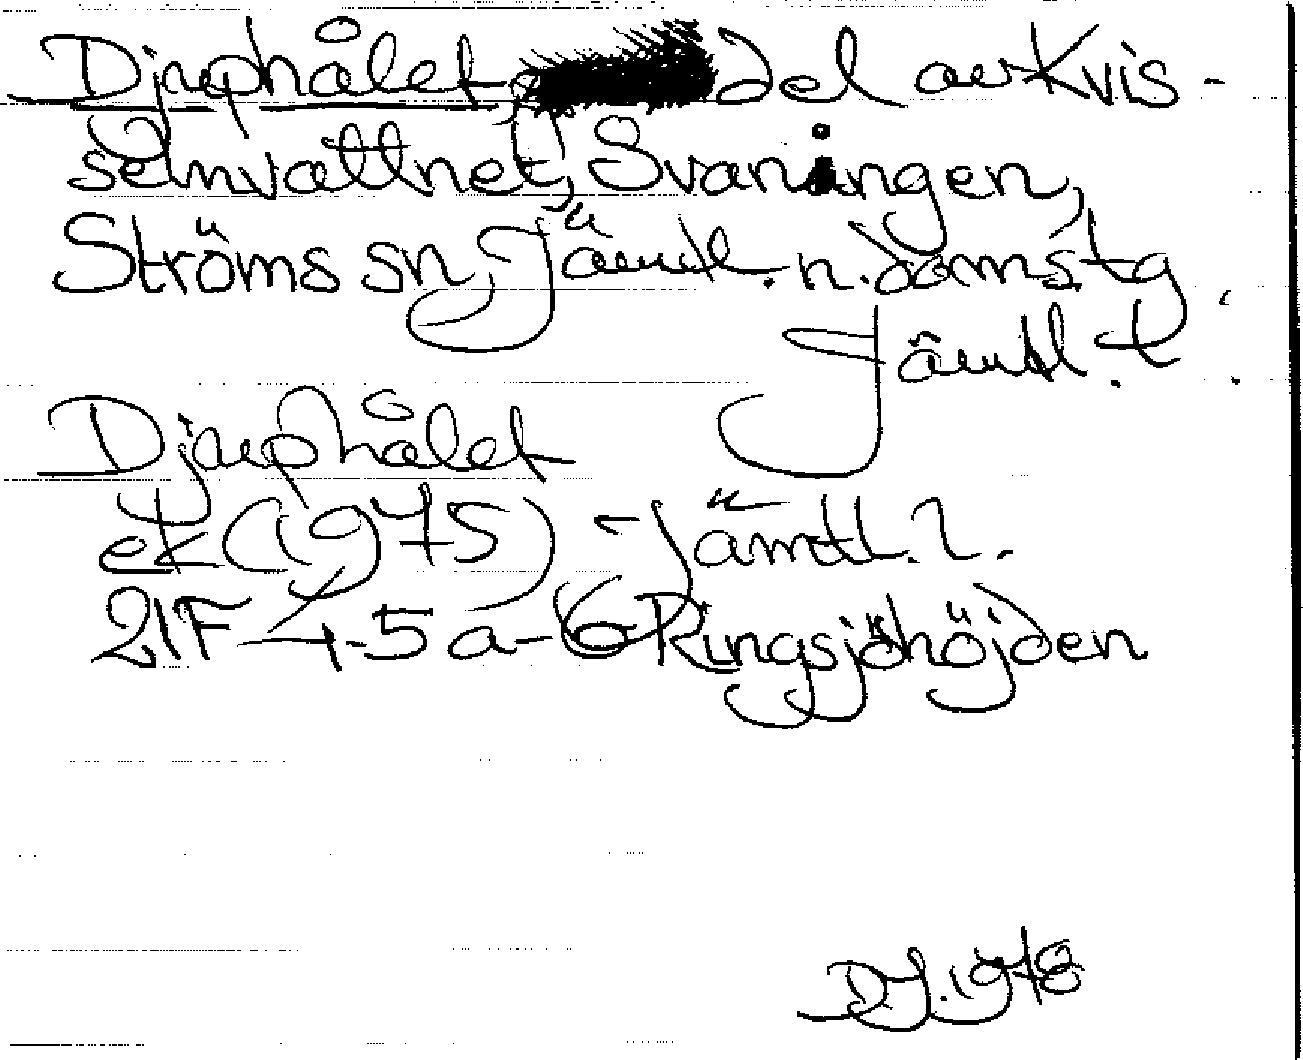 Djuphålet, del av Kvis-
selnvattnet, Svaningen,
Ströms sn, Jämtl. n. domstg
Jämtl. l.
Djuphålet
ek (1975) Jämtl. l.
21F 4-5 a-b Ringsjöhöjden
DJ. 1978